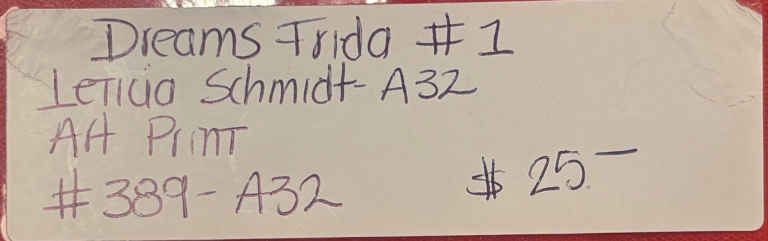 Dreams Frida #1
Leticia Schmidt - A32
Art Print
#389 - A32
$25.-